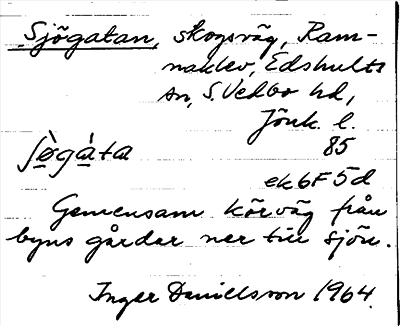 Sjögatan, skogsväg, Ram-
naklev, Edshults
sn, S. Vedbo hd,
Jönk. l.
85
ʃø̀gàta
ek 6F5d
Gemensam körväg från
byns gårdar ner till sjön.
Inger Danielsson 1964.